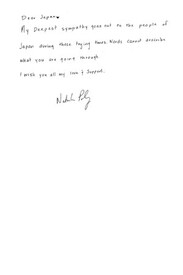 Dear Japan
My Deepest sympathy goes out to the people of
Japan during these trying times. Words cannot describe
what you are going through.
I wish you all my love & support.